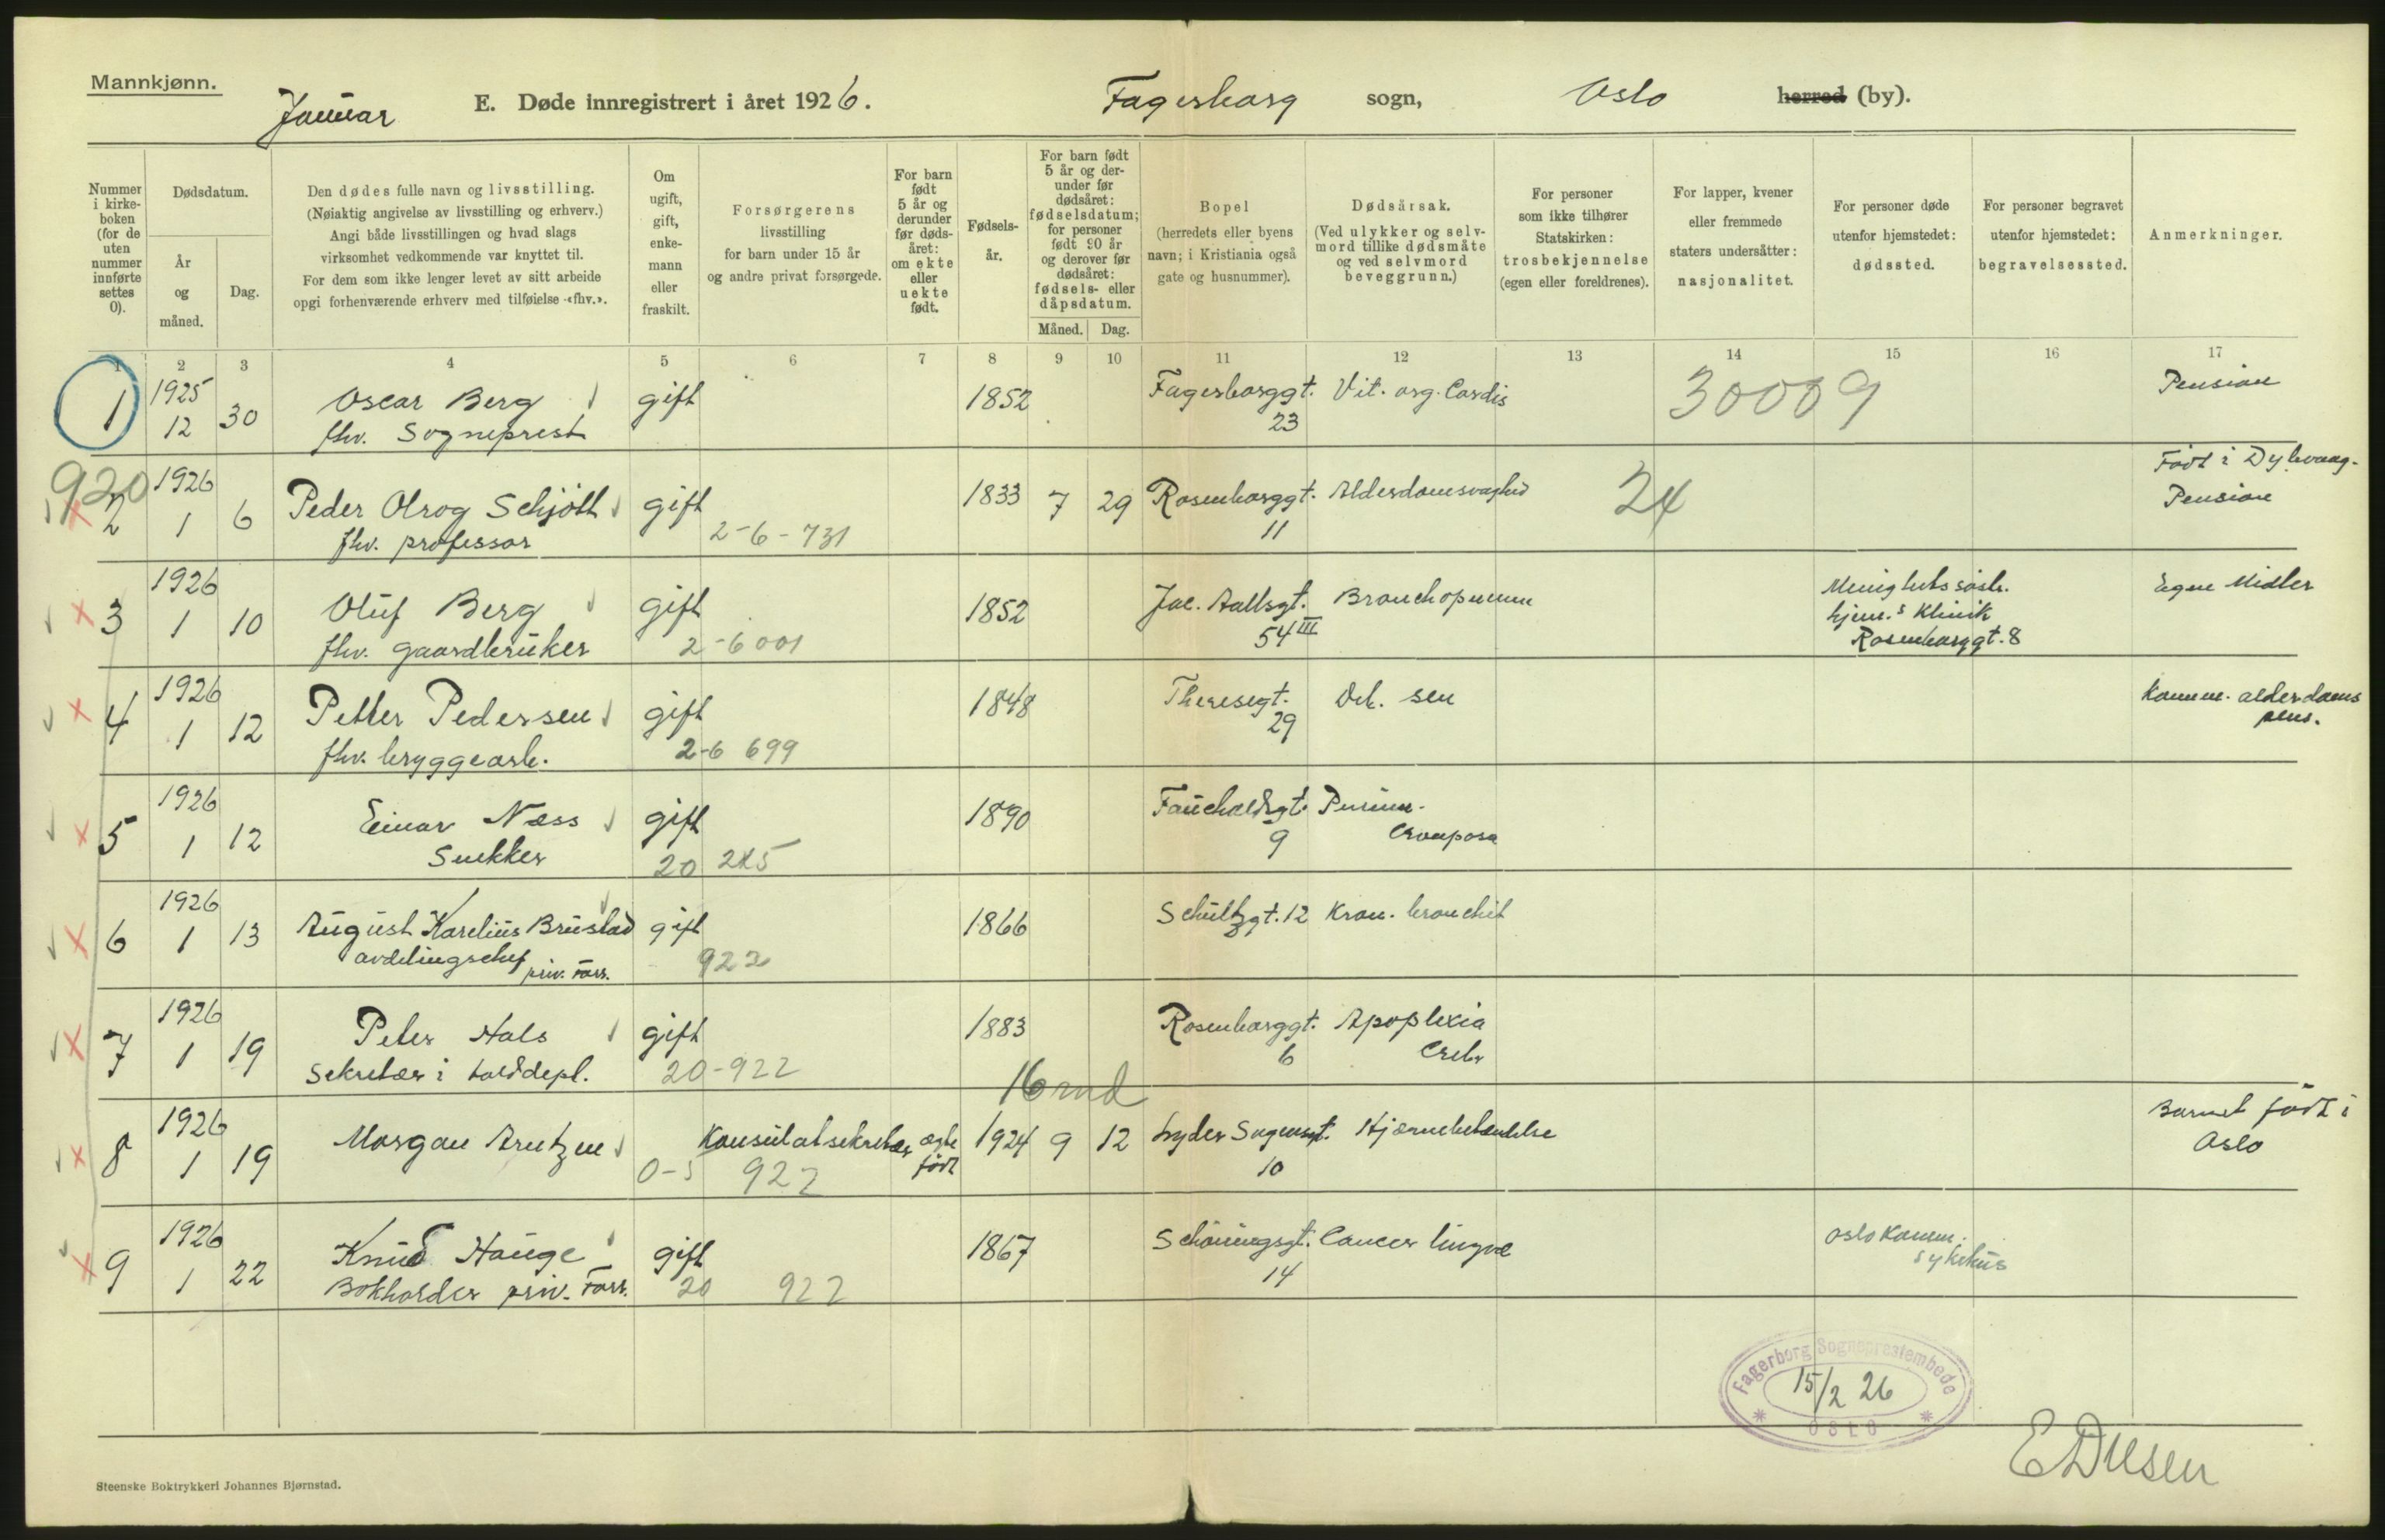 Mannkjønn.
Januar
E. Døde innregistrert i året 1926.
Fagerborg sogn,
Oslo herred (by).
Nummer i kirkeboken (for de uten nummer innførte settes 0).
Dødsdatum.
År og måned.
Dag.
Den dødes fulle navn og livsstilling.
(Nøiaktig angivelse av livsstilling og erhverv.)
Angi både livsstillingen og hvad slags
virksomhet vedkommende var knyttet til.
For dem som ikke lenger levet av sitt arbeide
opgi forhenværende erhverv med tilføielse «fhv.».
Om ugift, gift, enkemann eller fraskilt.
Forsørgerens
livsstilling
for barn under 15 år
og andre privat forsørgede.
For barn født 5 år og derunder før dødsåret: om ekte eller uekte født.
Fødselsår.
For barn født 5 år og derunder før dødsåret: fødselsdatum; for personer født 90 år og derover før dødsåret: fødsels- eller dåpsdatum.
Måned. Dag.
Bopel
(herredets eller byens
navn; i Kristiania også
gate og husnummer).
Dødsårsak.
(Ved ulykker og selvmord tillike dødsmåte og ved selvmord beveggrunn.)
For personer
som ikke tilhører
Statskirken:
trosbekjennelse
(egen eller foreldrenes).
For lapper, kvener
eller fremmede
staters undersåtter:
nasjonalitet.
For personer døde
utenfor hjemstedet:
dødssted.
For personer begravet
utenfor hjemstedet:
begravelsessted.
Anmerkninger.
1 2 3 4 5 6 7 8 9 10 11 12 13 14 15 16 17
1 1925 12 30 Oscar Berg gift 1852 Fagerborggt. 23 Vit. org. Cordis 30009 Pension
fhv. Sogneprest
920
2 1926 1 6 Peder Olrog Schjøtt gift 1833 7 29 Rosenborggt. 11 Alderdomsvaghed 24 Født i Dybvaag. Pension
fhv. professor 2-6-731
3 1926 1 10 Oluf Berg gift 1852 Jac. Aallsgt. 54 III Bronchopneum Menighetssøst. hjem. s Klinik Rosenborggt. 8 Egne Midler
fhv. gaardbruker 2-6 001
4 1926 1 12 Petter Pedersen gift 1848 Theresegt. 29 Deb. sen Komm. alderdoms pens.
fhv. bryggearb. 2-6 699
5 1926 1 12 Einar Næss gift 1890 Fauchaldsgt. 9 Pneum. Crouposa
Snekker 20
6 1926 1 13 August Karelius Brustad gift 1866 Schultzgt. 12 Kron. bronchit
avdelingschef priv. Forr. 922
7 1926 1 19 Peter Hals gift 1883 Rosenborggt. 6 Apoplexia Crebr
Sekretær i tolddept. 20-922
16 md
8 1926 1 19 Morgan Arntzen Konsulatsekretær ægte født 1924 9 12 Lyder Sagensgt. 10 Hjernebetændelse Barnet født i Oslo
0-5 922
9 1926 1 22 Knud Hauge gift 1867 Schøningsgt. 14 Cancer lingvæ Oslo Komm. sykehus
Bokholder priv. Forr. 20 922
Fagerborg Sogneprestembede
15/2 26
OSLO
Steenske Boktrykkeri Johannes Bjørnstad.